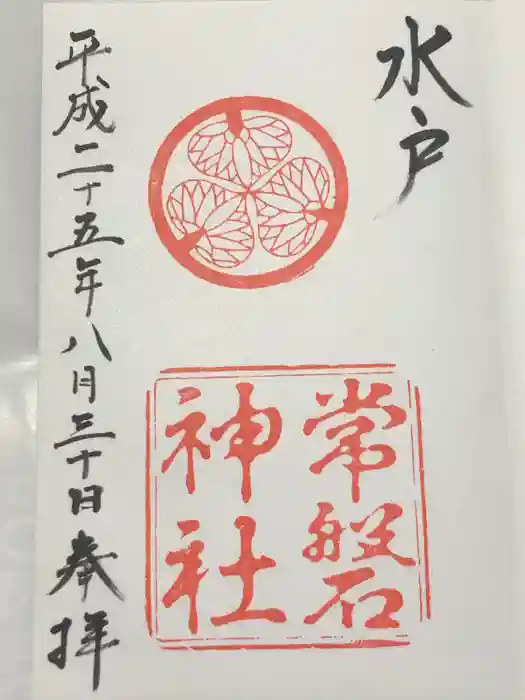 水戸
常磐
神社
平成二十五年八月三十日奉拝